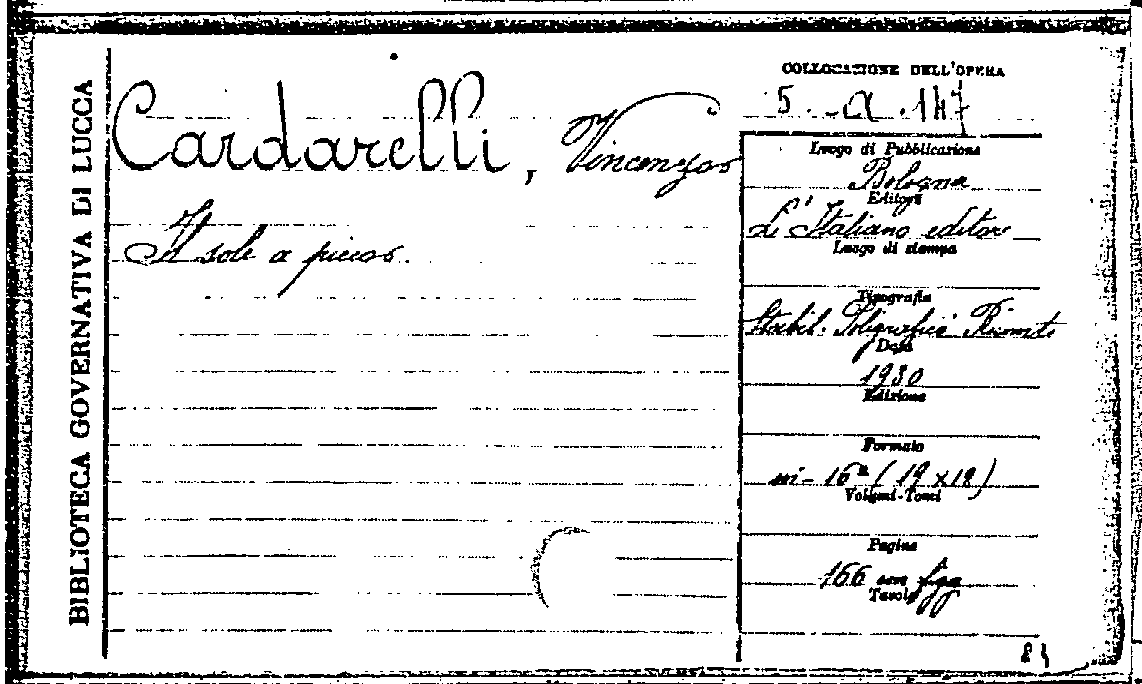 BIBLIOTECA GOVERNATIVA DI LUCCA
Cardarelli, Vincenzo
Il sole a picco.
COLLOCAZIONE DELL'OPERA
5. - a. 147
Luogo di Pubblicazione
Bologna
Editore
L'Italiano editore
Luogo di stampa
Tipografia
Stabil. Poligrafici Riuniti
Data
1930
Edizione
Formato
in-16° (19 x 12)
Volumi-Tomi
Pagine
166 con figg
Tavole